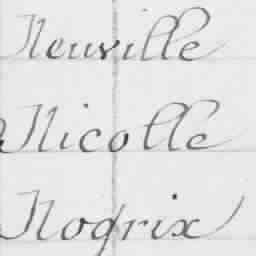 Neuville
Nicolle
Nogrix